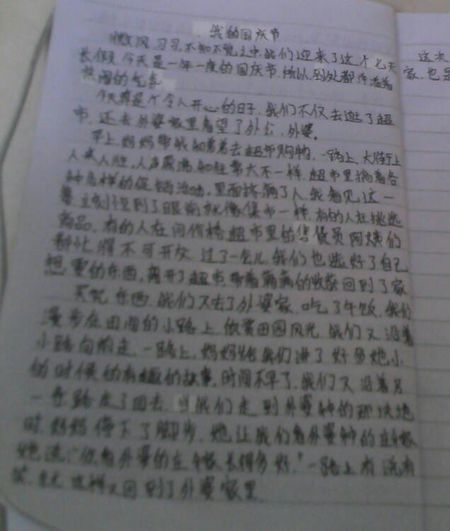 我的国庆节
微风习习,不知不觉之中,我们迎来了这个七天
长假,今天是一年一度的国庆节,所以,到处都洋溢着
热闹的气氛
今天真是个令人开心的日子,我们不仅去逛了超
市,还去外婆家里看望了外公、外婆。
早上,妈妈带我和去超市购物,一路上,大街上
人来人往,人声鼎沸,和往常大不一样,超市里搞着各
种各样的促销活动,里面挤满了人,我看见这一
就像集市一样,有的人在挑选
商品,有的人在问价格,超市里的售货员阿姨们
都忙得不可开交,过了一会儿,我们也选好了自己
想要的东西,离开了超市,带着满满的收获回到了家
买完东西,我们又去了外婆家,吃了午饭,我们
漫步在田间的小路上,欣赏田园风光,我们又沿着
小路向前走,一路上,妈妈给我们讲了好多她小
的时候的有趣的故事,时间不早了,我们又沿着另
一条路走了回去,当我们走到外婆种的那块地
时,妈妈停下了脚步,她让我们看外婆种的
她说:“你看外婆的长得多好,”一路上有说有
笑,就这样又回到了外婆家里
这次
家,也是